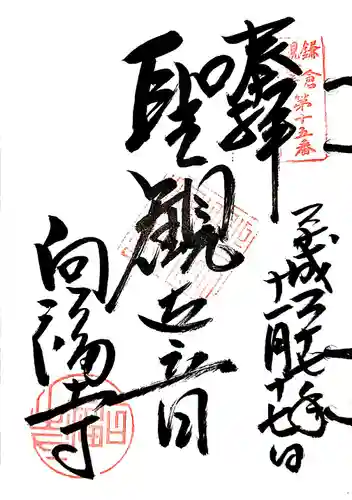 鎌倉
第十五番
奉拝
平成二十七年
十一月十七日
聖観世音
向福寺